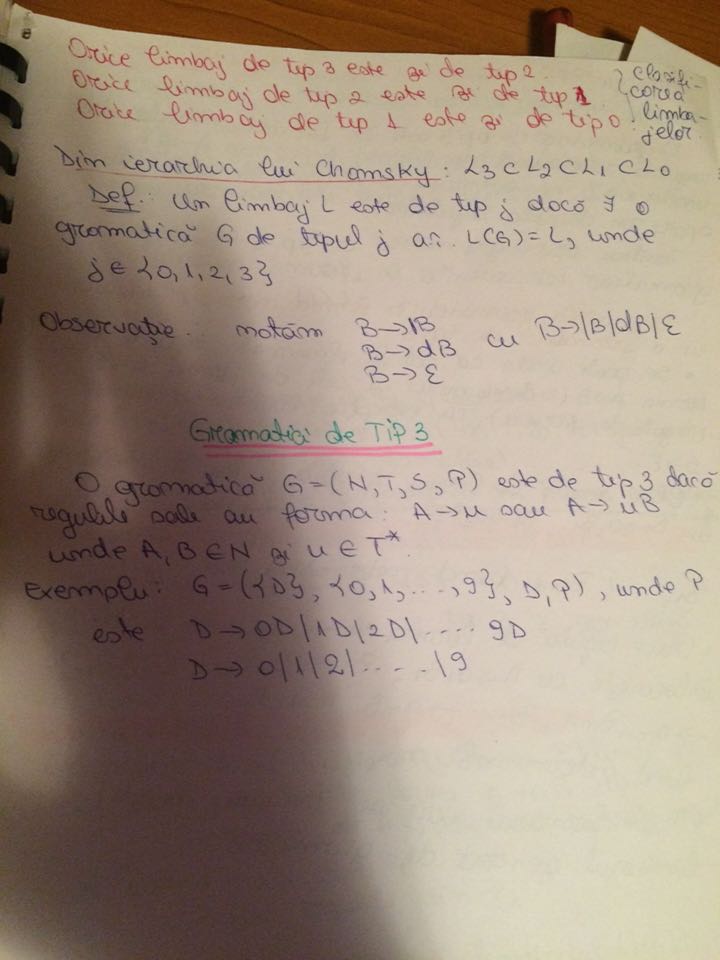 Orice limbaj de tip 3 este și de tip 2.
Orice limbaj de tip 2 este și de tip 1
Orice limbaj de tip 1 este și de tip 0.
clasifi-
carea
limba-
jelor
Din ierarhia lui Chomsky: L3 ⊂ L2 ⊂ L1 ⊂ L0
Def.: Un limbaj L este de tip j dacă ∃ o
gramatică G de tipul j a.î. L(G)=L, unde
j ∈ {0,1,2,3}
Observație: notăm B→1B cu B→1B|dB|ε
B→dB
B→ε
Gramatici de Tip 3
O gramatică G=(N,T,S,P) este de tip 3 dacă
regulile sale au forma: A→u sau A→uB
unde A, B ∈ N și u ∈ T*.
Exemplu: G=({D}, {0,1,...,9}, D, P), unde P
este D→0D|1D|2D|.....9D
D→0|1|2|.....|9